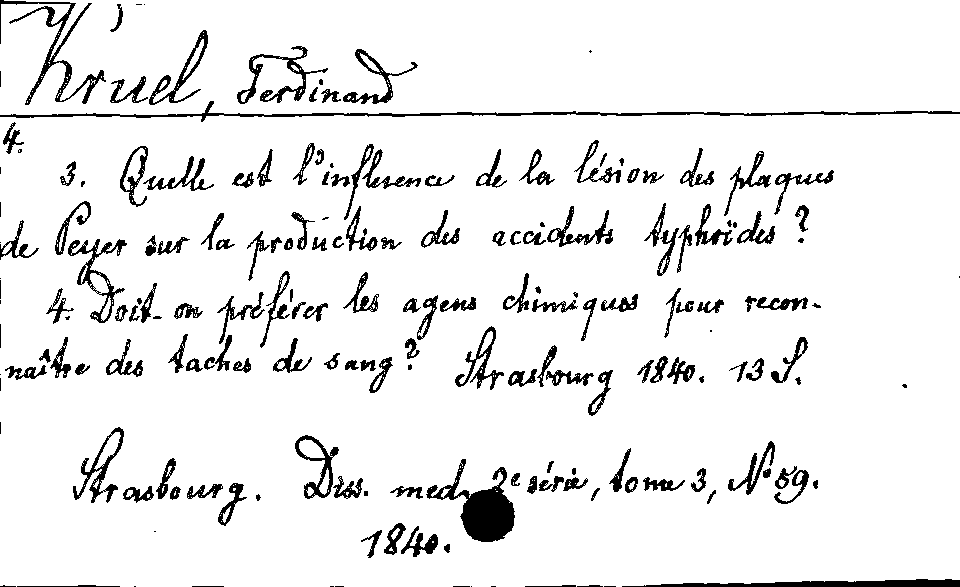 Kruel, Ferdinand
4.
3. Quelle est l'influence de la lésion des plaques
de Peyer sur la production des accidents typhoïdes?
4. Doit-on préférer les agens chimiques pour recon-
naître des taches de sang? Strasbourg 1840. 13 S.
Strasbourg. Diss. med. 2e série, tome 3, No 59.
1840.